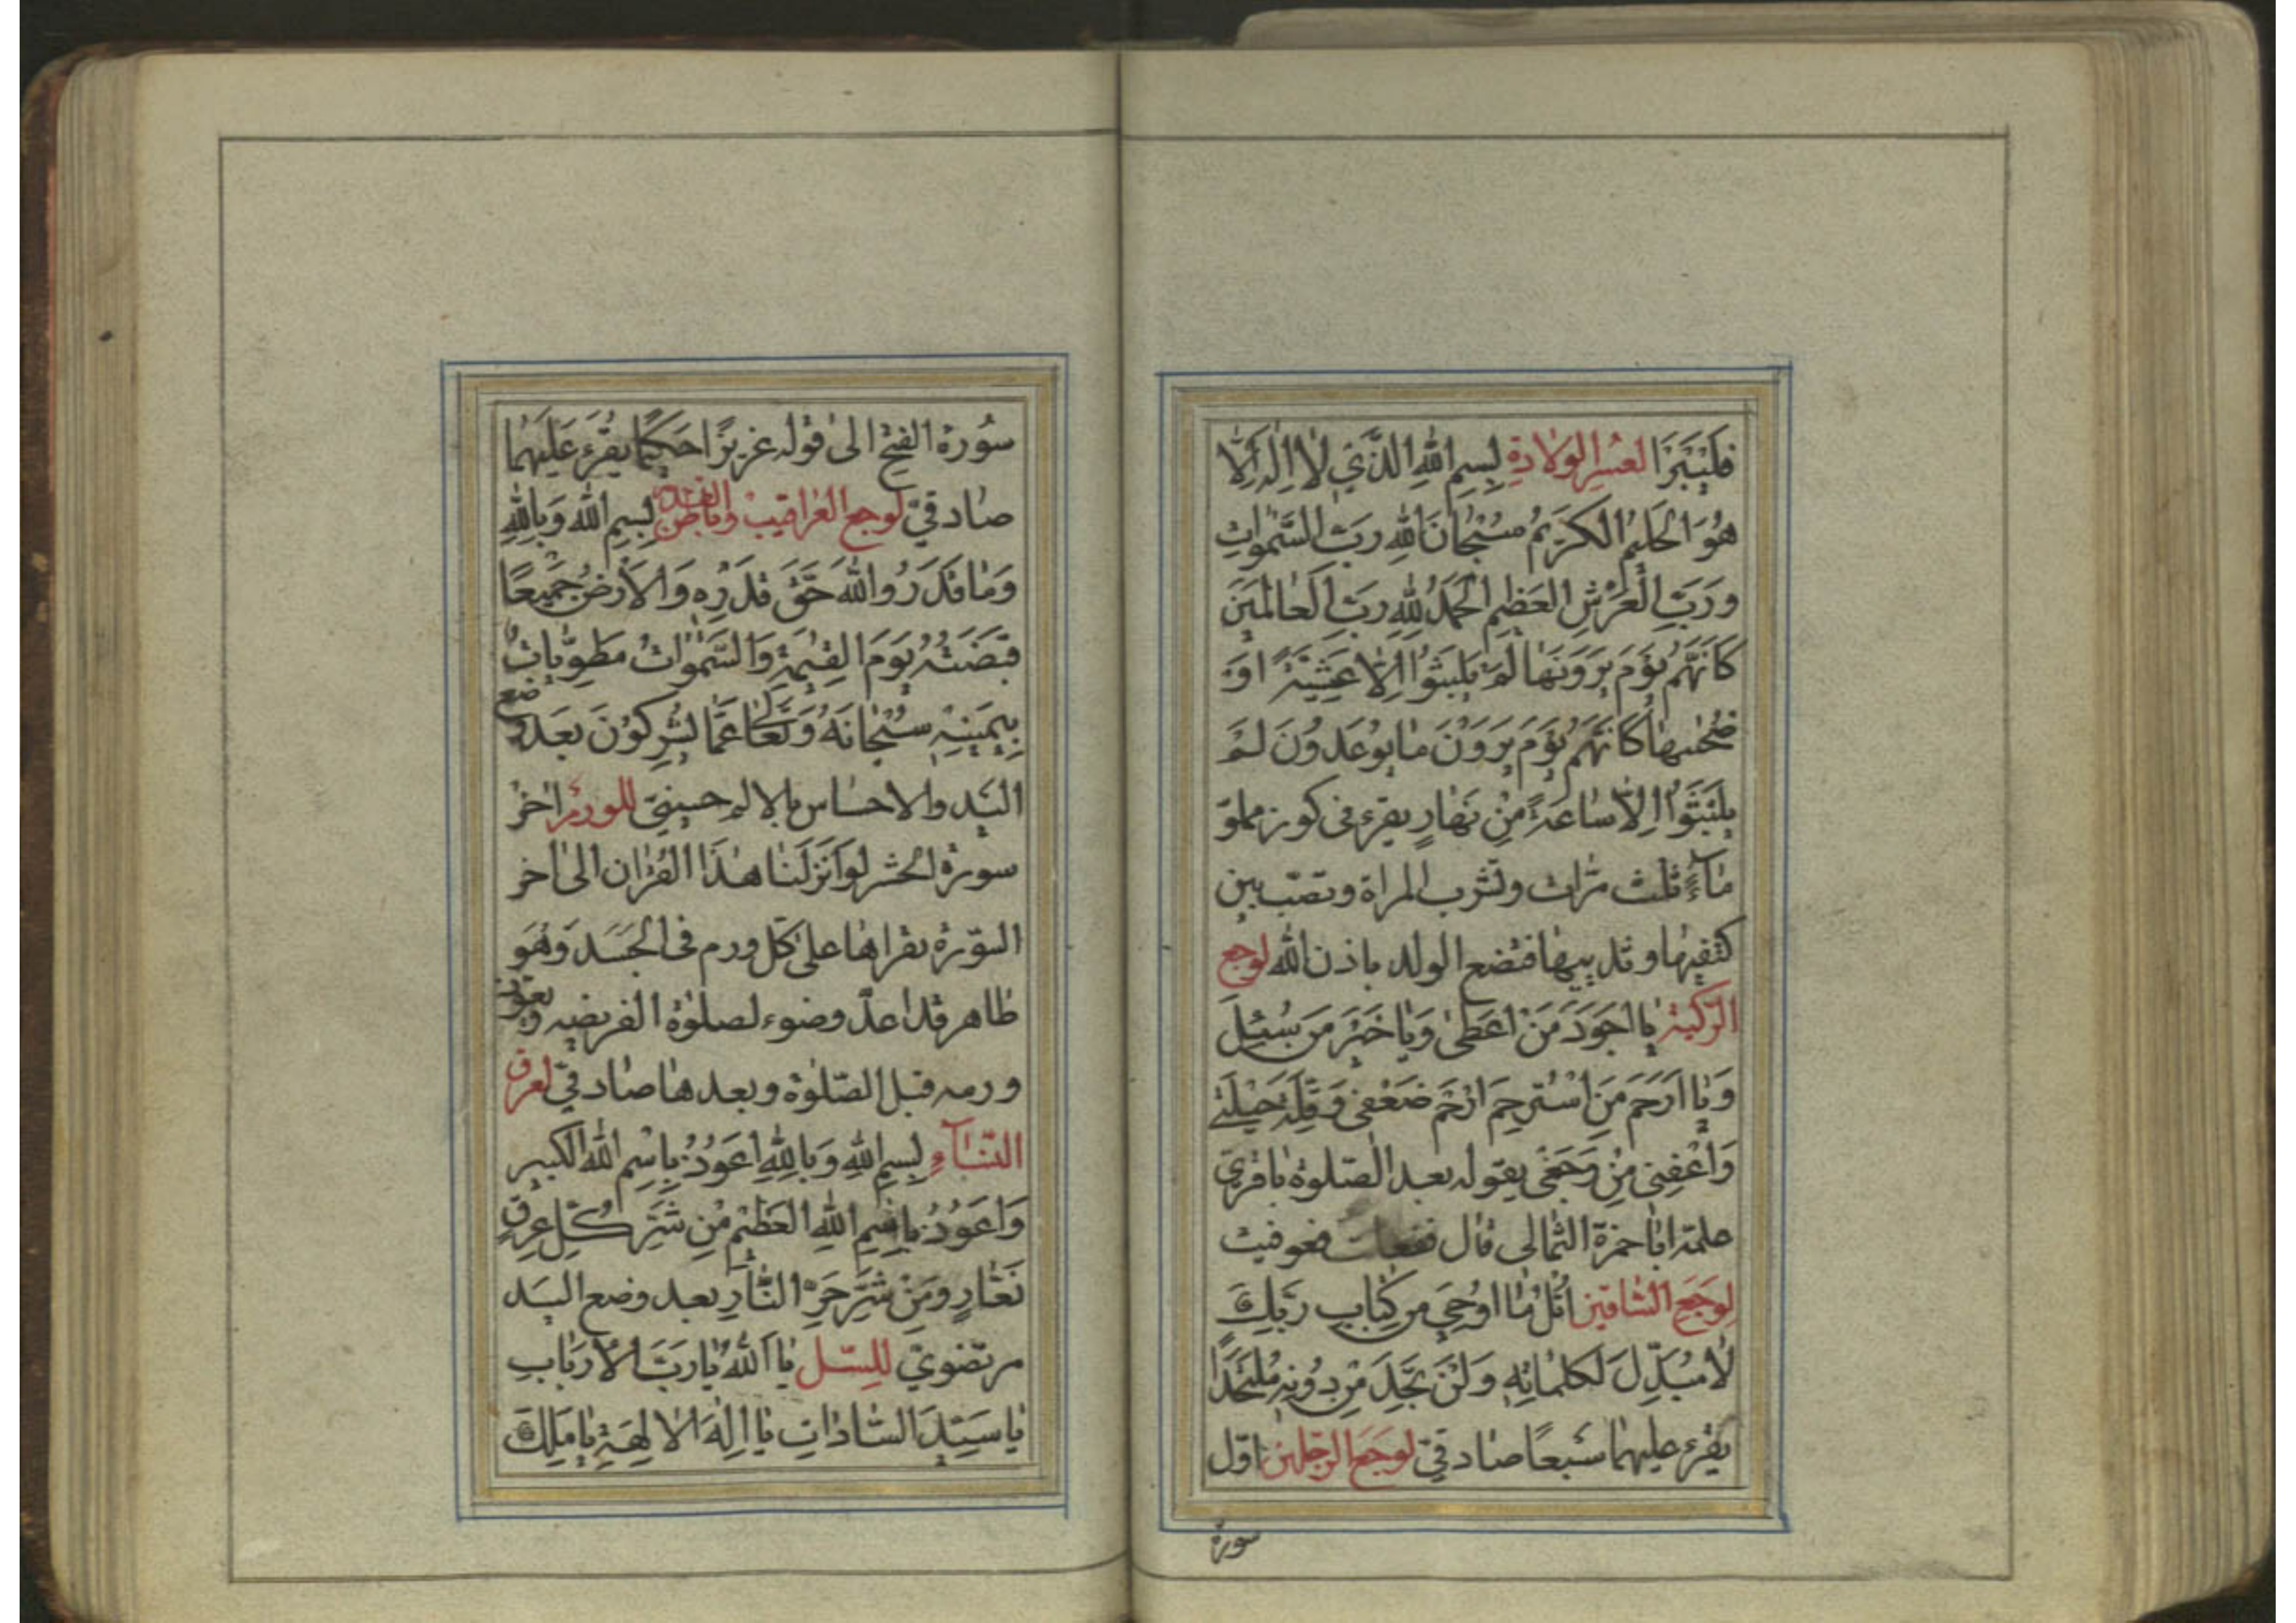 فَلْيَبْرَزْ العُسْرِ الوِلٰادَةِ بِسْمِ اللهِ الَّذِي لٰا اِلٰهَ اِلَّا
هُوَ الْحَلِيمُ الْكَرِيمُ سُبْحٰانَ اللهِ رَبِّ السَّمٰوٰاتِ
وَرَبِّ الْعَرْشِ الْعَظِيمِ الْحَمْدُ لِلّٰهِ رَبِّ الْعٰالَمِينَ
كَاَنَّهُمْ يَوْمَ يَرَوْنَهٰا لَمْ يَلْبَثُوا اِلّٰا عَشِيَّةً اَوْ
ضُحٰيهٰا كَاَنَّهُمْ يَوْمَ يَرَوْنَ مٰا يُوعَدُونَ لَمْ
يَلْبَثُوا اِلّٰا سٰاعَةً مِنْ نَهٰارٍ يقرء فى كوز مملوّ
مٰاءً ثلث مرّات وتشرب المراة وتصبّ بين
كتفيها وثدييها فتضع الولد باذن الله لوجع
الرّكبة يٰا اَجْوَدَ مَنْ اَعْطىٰ وَيٰا خَيْرَ مَنْ سُئِلَ
وَيٰا اَرْحَمَ مَنِ اسْتُرْحِمَ اِرْحَمْ ضَعْفِى وَقِلَّةَ حِيلَتِى
وَاَعْفِنِى مِنْ وَجَعِى يقوله بعد الصّلوة باقرىّ
علّمه ابٰا حمزة الثمٰالى قال ففعلت فعوفيت
لِوَجَعِ السّٰاقين اُتْلُ مٰا اُوحِيَ مِن كِتٰابِ رَبِّكَ
لٰا مُبَدِّلَ لِكَلِمٰاتِهِ وَلَنْ تَجِدَ مِنْ دُونِهِ مُلْتَحَدًا
يقرء عليهما سبعًا صٰادقىّ لوجع الرّجلين اوّل
سورة
سُورة الفتح الى قوله عزيزًا حكيمًا يقرء عليهما
صٰادقىّ لوجع العراقيب وباطن القدم بِسْمِ اللهِ وَبِاللهِ
وَمٰا قَدَرُوا اللهَ حَقَّ قَدْرِهِ وَالْاَرْضُ جَمِيعًا
قَبْضَتُهُ يَوْمَ الْقِيٰمَةِ وَالسَّمٰوٰاتُ مَطْوِيّٰاتٌ
بِيَمِينِهِ سُبْحٰانَهُ وَتَعٰالىٰ عَمّٰا يُشْرِكُونَ بعد وضع
اليد والاحساس بالالم حسينىّ للورم اخر
سورة الحشر لَو اَنْزَلْنٰا هٰذَا الْقُرْاٰن الى اخر
السّورة يقراها على كلّ ورم فى الجسد وهو
طاهر قد اعدّ وضوء لصلوة الفريضه ويعوّذ
ورمه قبل الصّلوة وبعدها صٰادقىّ لعرق
النّسٰاء بِسْمِ اللهِ وَبِاللهِ اَعُوذُ بِاسْمِ اللهِ الكبير
وَاَعُوذُ بِاسْمِ اللهِ الْعَظِيمِ مِنْ شَرِّ كُلِّ عِرْقٍ
نَعّٰارٍ وَمِنْ شَرِّ حَرِّ النّٰارِ بعد وضع اليد
مرتضوىّ للسّل يٰا اَللهُ يٰا رَبَّ الْاَرْبٰابِ
يٰا سَيِّدَ السّٰادٰاتِ يٰا اِلٰهَ الْاٰلِهَةِ يٰا مَلِكَ